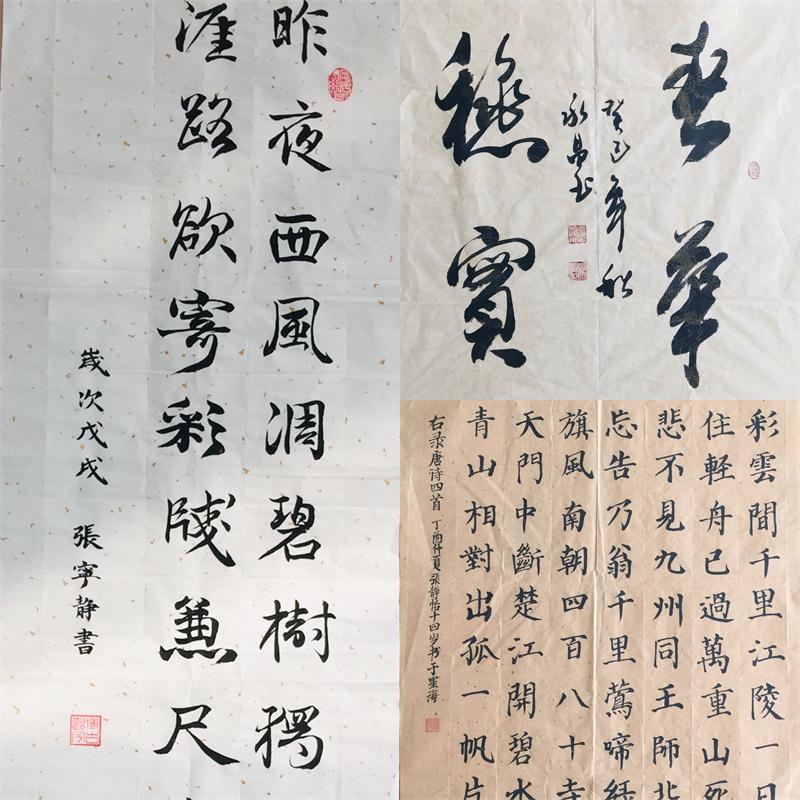 昨夜西風凋碧樹獨
涯路欲寄彩牋兼尺
歲次戊戌 張寧静書
春華
穐實
癸巳年秋
永昌书
彩雲間千里江陵一日
住輕舟已過萬重山死
悲不見九州同王師北
忘告乃翁千里鶯啼緑
旗風南朝四百八十寺
天門中斷楚江開碧水
青山相對出孤一帆片
右录唐诗四首 丁酉仲夏張静怡十四岁书于墨海